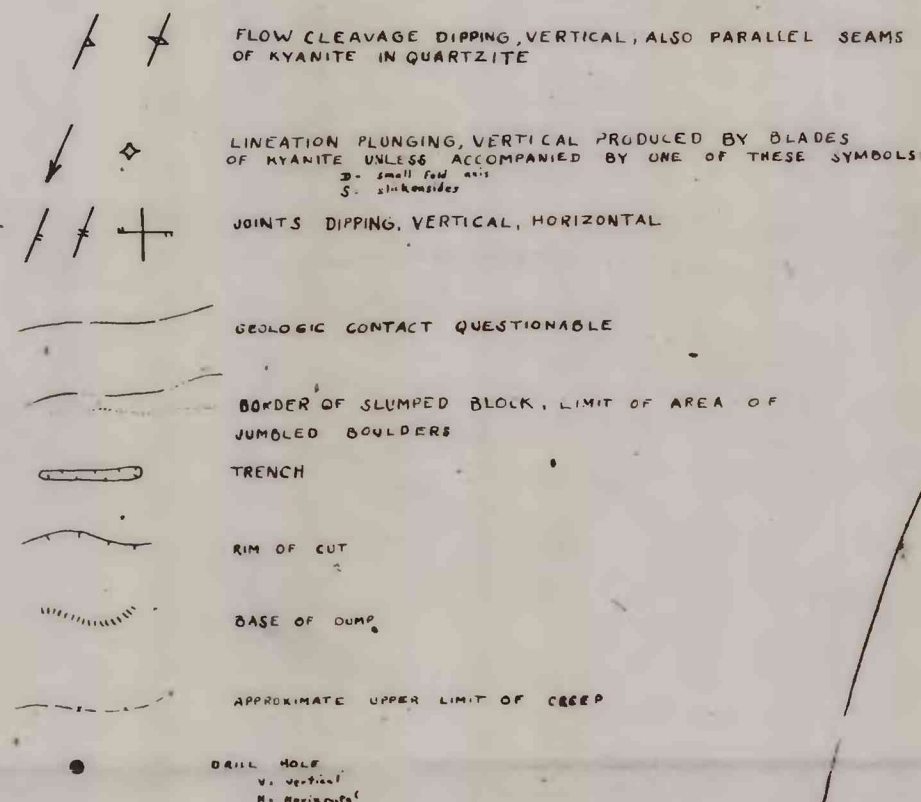 FLOW CLEAVAGE DIPPING, VERTICAL, ALSO PARALLEL SEAMS
OF KYANITE IN QUARTZITE
LINEATION PLUNGING, VERTICAL PRODUCED BY BLADES
OF KYANITE UNLESS ACCOMPANIED BY ONE OF THESE SYMBOLS
D- small fold axis
S- slickensides
JOINTS DIPPING, VERTICAL, HORIZONTAL
GEOLOGIC CONTACT QUESTIONABLE
BORDER OF SLUMPED BLOCK, LIMIT OF AREA OF
JUMBLED BOULDERS
TRENCH
RIM OF CUT
BASE OF DUMP
APPROXIMATE UPPER LIMIT OF CREEP
DRILL HOLE
V. vertical
H. Horizontal